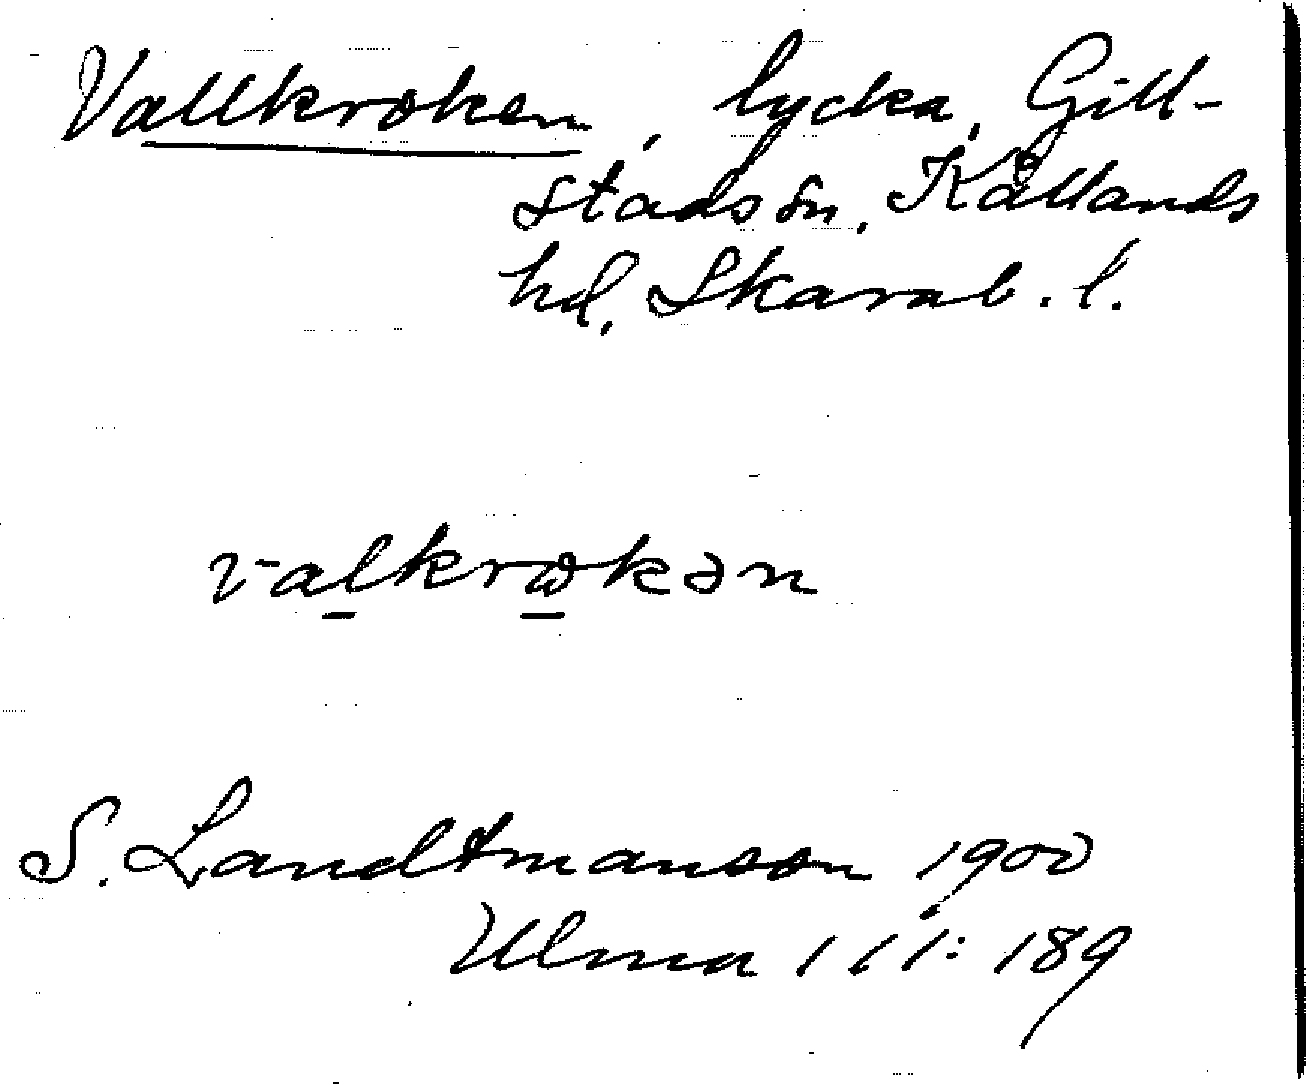 Vallkroken, lycka, Gill-
stads sn, Kållands
hd, Skarab. l.
valkrωkən
S. Landtmanson 1900
Ulma 111:189